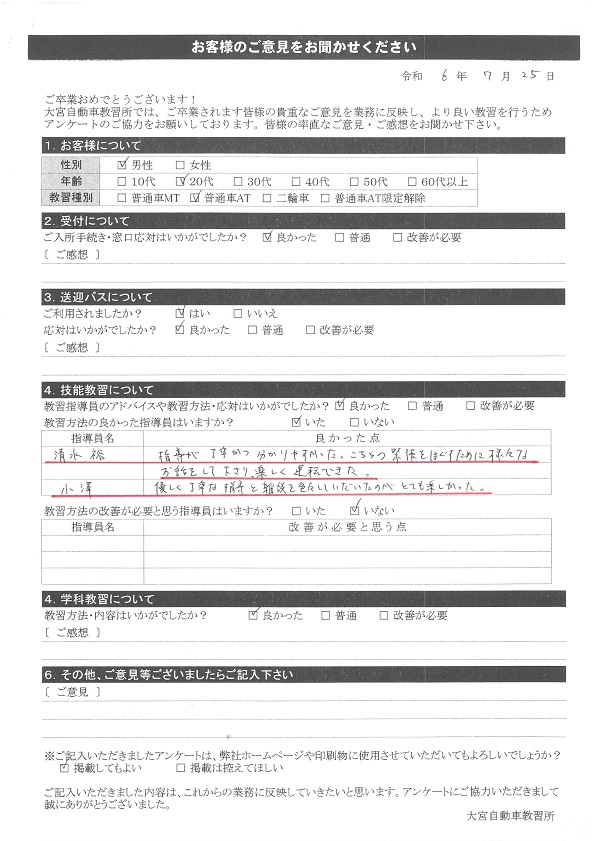 お客様のご意見をお聞かせください
令和 6 年 7 月 25 日
ご卒業おめでとうございます！
大宮自動車教習所では、ご卒業されます皆様の貴重なご意見を業務に反映し、より良い教習を行うため
アンケートのご協力をお願いしております。皆様の率直なご意見・ご感想をお聞かせ下さい。
1. お客様について
性別 ☑男性 □女性
年齢 □10代 ☑20代 □30代 □40代 □50代 □60代以上
教習種別 □普通車MT ☑普通車AT □二輪車 □普通車AT限定解除
2. 受付について
ご入所手続き・窓口応対はいかがでしたか？ ☑良かった □普通 □改善が必要
[ ご感想 ]
3. 送迎バスについて
ご利用されましたか？ ☑はい □いいえ
応対はいかがでしたか？ ☑良かった □普通 □改善が必要
[ ご感想 ]
4. 技能教習について
教習指導員のアドバイスや教習方法・応対はいかがでしたか？ ☑良かった □普通 □改善が必要
教習方法の良かった指導員はいますか？ ☑いた □いない
指導員名 良かった点
清水 裕 指導が丁寧かつ分かりやすかった。こちらの緊張をほぐすために様々な
お話をして下さり楽しく運転できた。
小澤 優しく丁寧な指導と雑談を
とても楽しかった。
教習方法の改善が必要と思う指導員はいますか？ □いた ☑いない
指導員名 改善が必要と思う点
4. 学科教習について
教習方法・内容はいかがでしたか？ ☑良かった □普通 □改善が必要
[ ご感想 ]
6. その他、ご意見等ございましたらご記入下さい
[ ご意見 ]
※ご記入いただきましたアンケートは、弊社ホームページや印刷物に使用させていただいてもよろしいでしょうか？
☑掲載してもよい □掲載は控えてほしい
ご記入いただきました内容は、これからの業務に反映していきたいと思います。アンケートにご協力いただきまして
誠にありがとうございました。
大宮自動車教習所